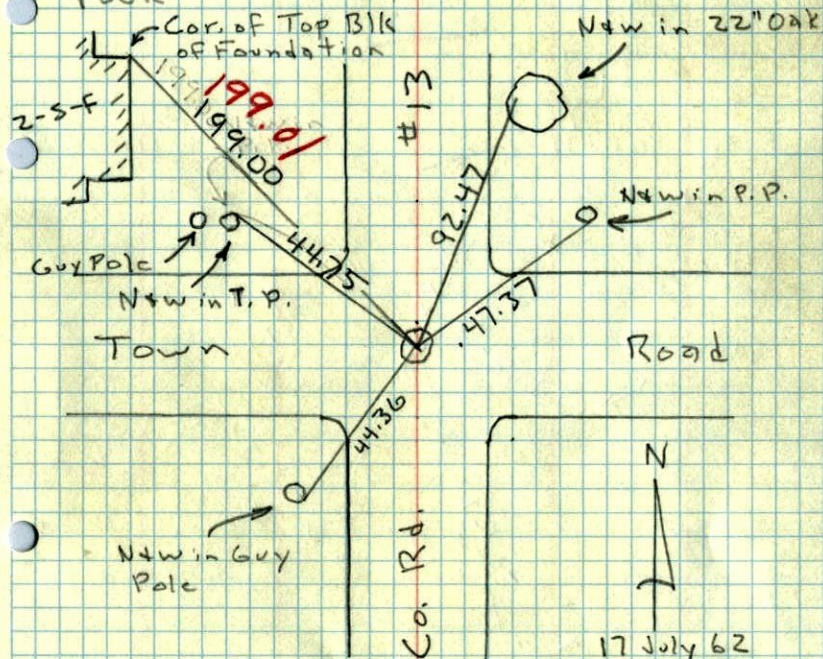 Cor. of Top Blk
of Foundation
N&W in 22" Oak
199.01
199.00
#13
2-S-F
92.47
N&W in P.P.
Guy Pole
44.75
N&W in T.P.
47.37
Town
Road
44.36
N
N&W in Guy
Pole
Co. Rd.
17 July 62